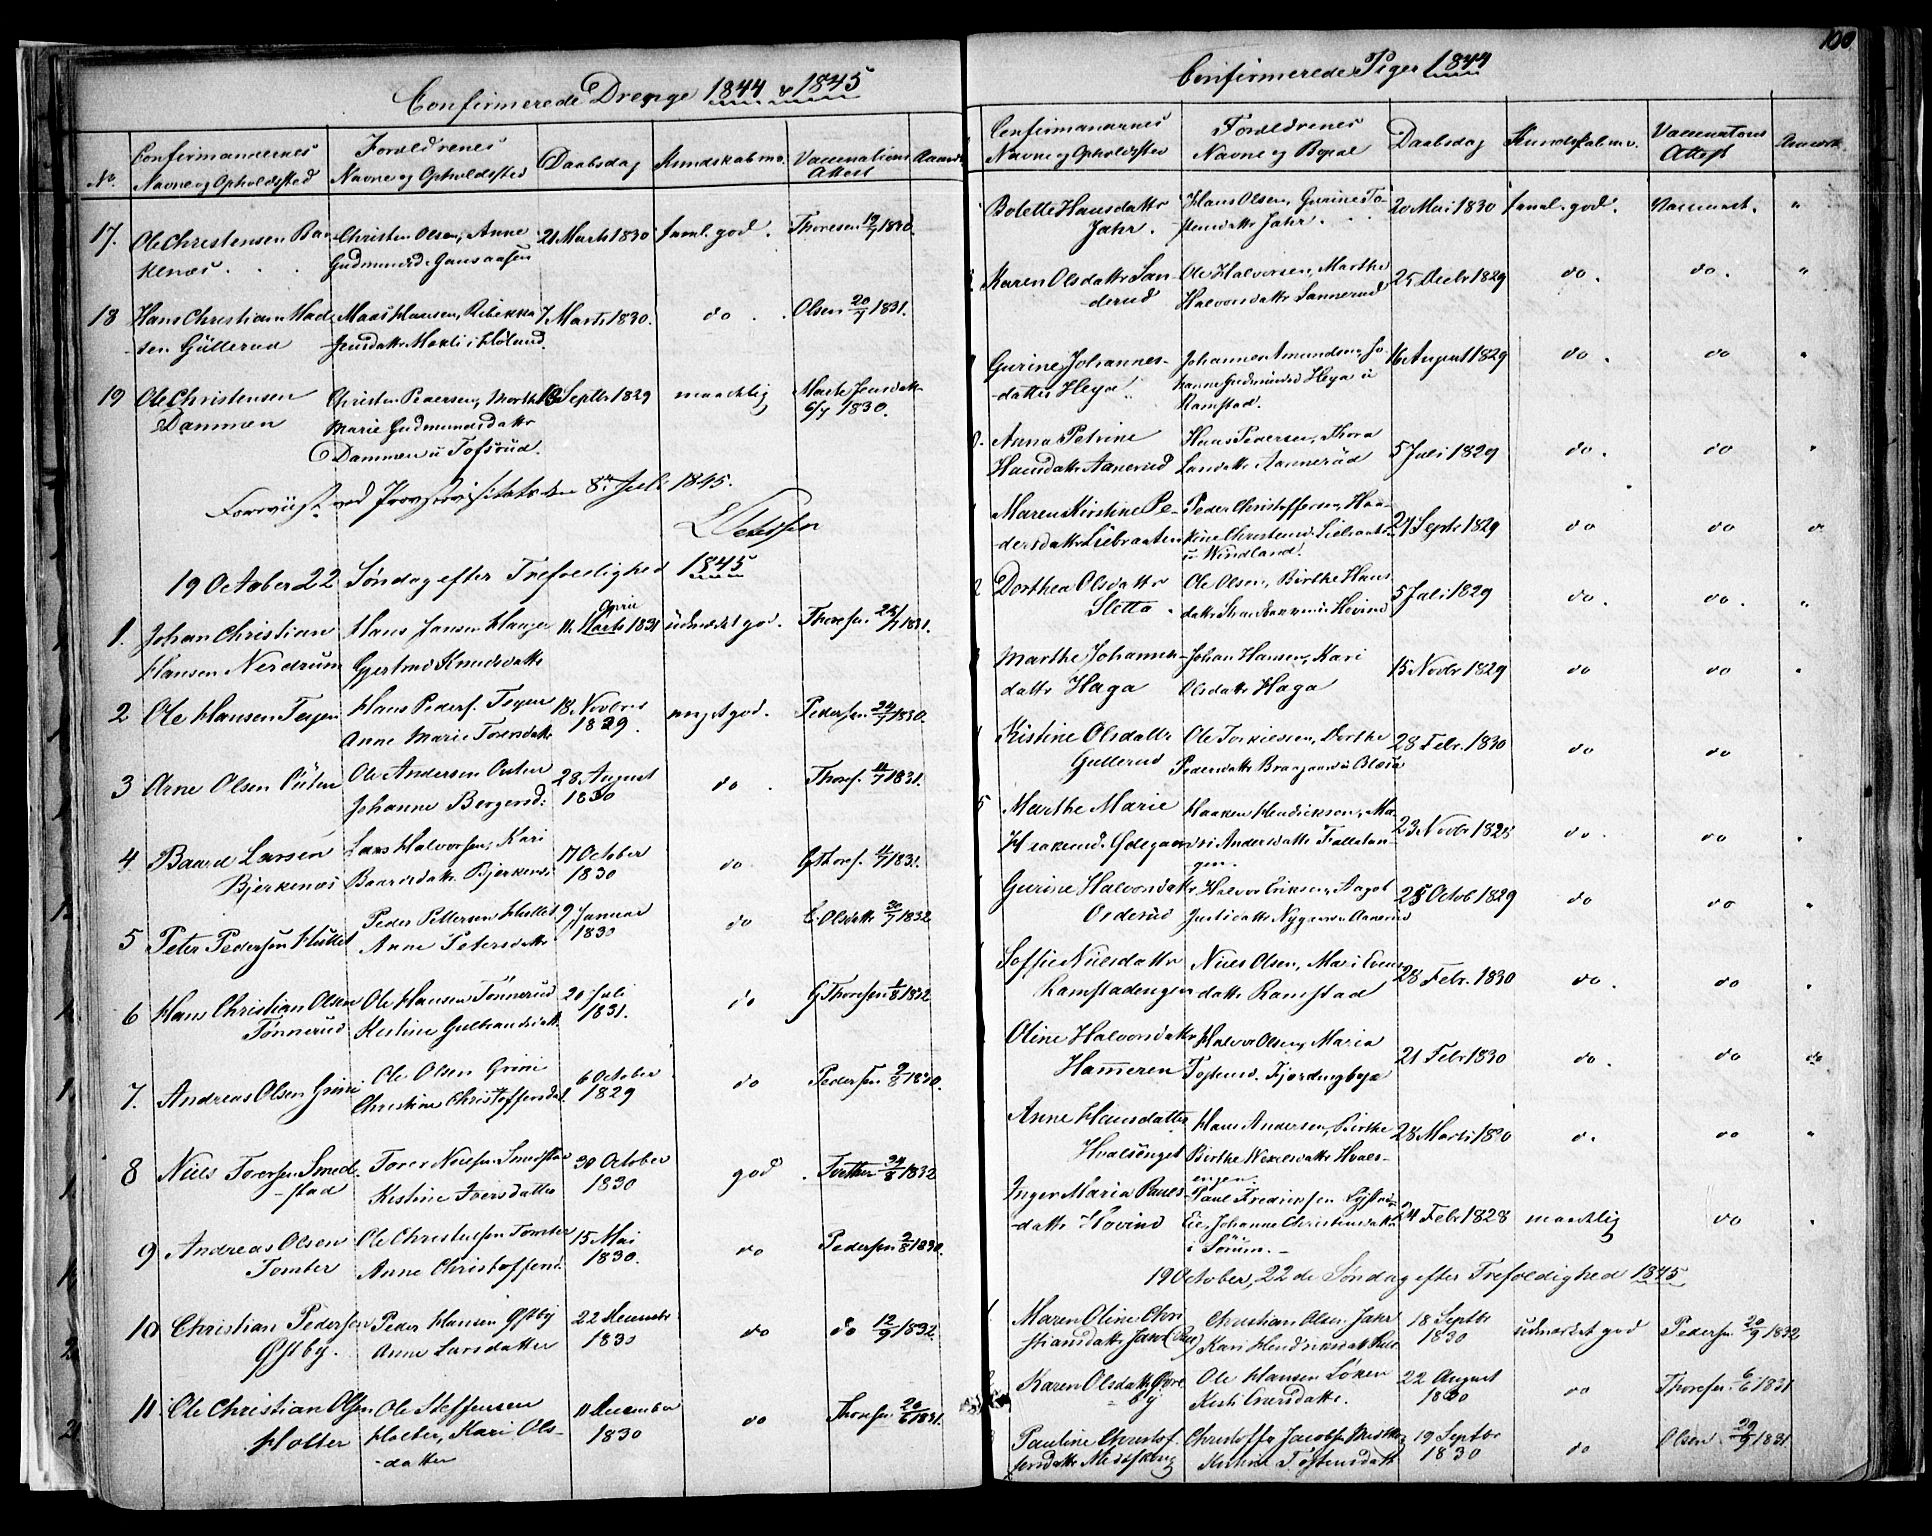 Confirmerede Drenge 1844 & 1845
No.
Confirmandernes
Navne og Opholdsted
Forældrenes
Navne og Opholdsted
Daabsdag
Kundskab m.v.
Vaccinations
Attest
17.
Ole Christensen
Christen Olsen, Anne
21 Marts 1830
saml. god.
Thoresen 19/7 1830.
18
Hans Christian Mad
sen Güllerud
Mads Hansen, Ribekka
Jensdatter i Høland.
7 Marts 1830.
do
Olsen 20/7 1831.
19
Ole Christensen
Dammen
Christen Pedersen, Marthe
Marie Gudmundsdattr
Dammen u Tofsrud.
13 Septbr 1829
maadelig
Marte Jensdattr
6/7 1830.
Forevist ved Provstevisitats den 8de Juli 1845.
19 October 22 Søndag efter Trefoldighed 1845
1.
Johan Christian
Hansen Nerdrum
Hans Jansen
Gjertrud Knudsdattr
April
11 Marts 1831
udmærket god.
Thoresen 25/7 1831.
2
Ole Hansen Teyen
Hans Peders. Teyen
Anne Marie Toversdattr
18. Novbris
1829.
meget god.
Pedersen 24/7 1830.
3
Arne Olsen Outen
Ole Andersen Outen
Johanne Bergersd:
28 August
1830
do
Thores. 11/7 1831.
4
Baard Larsen
Bjerkenæs
Lars Halvorsen, Kari
Baardsdattr Bjerkenæs
17 October
1830
do
G Thores. 11/7 1831.
5
Peter Pedersen Hullet
Peder Pettersen Hullet
Anne Petersdattr
9 Januar
1830
do
C. Olsdattr 30/7 1832
6
Hans Christian Olsen
Tønnerud
Ole Hansen Tønnerud
Kistine Gulbrandsdatt
20 Juli
1831.
do
G Thoresen 1/8 1832
7.
Andreas Olsen Grini
Ole Olsen Grini
Christine Christoffersdat.
6 October
1829
do
Pedersen 9/8 1830.
8
Niels Toversen Smed-
-stad
Tover Nielsen Smedstad
Kistine Iversdatter
30 October
1830
god
Tvether 24/8 1832
9
Andreas Olsen
Tomter
Ole Christensen Tomter
Anne Christoffersd.
15 Mai
1830.
do
Pedersen 9/8 1830.
10
Christian Pedersen
Østby.
Peder Hansen Østby
Anne Larsdatter
22 Decembr
1830
do
do 12/9 1832.
11
Ole Christian Olsen
Holter
Ole Steffensen
Holter, Kari Ols-
-datter
11 December
1830
do
Thoresen 20/6 1831.
100
Confirmerede Piger 1844
Confirmandernes
Navne og Opholdsted
Forældrenes
Navne og Bopæl
Daabsdag
Kundskab m.v.
Vaccinations
Attest
Bolette Hansdattr
Jahr.
Hans Olsen, Gurine To-
stensdattr Jahr.
20 Mai 1830
saml. god.
Vaccineret.
"
Karen Olsdattr San-
derud
Ole Halvorsen, Marthe
Halvorsdattr Sannerud
25 Decbr 1829
do.
do.
"
Gurine Johannes-
datter Heya
Johannes Amundsen, Jo-
hanne Gudmundsd Heya u
Ramstad.
16 August 1829
do.
do
"
Anna Petrine
Hansdattr Aanerud
Hans Pedersen, Thora
Larsdattr Aannerud
5 Juli 1829
do.
do
"
Maren Kirstine Pe-
dersdattr Liebraaten
Peder Christoffersen, Haa-
kine Christensd. Liebraaten
u Windland.
27 Septb 1829
do
do
2
Dorthea Olsdattr
Sletta.
Ole Olsen, Birthe Hans
dattr u Hovind
5 Juli 1829
do.
do.
"
Marthe Johanns-
dattr Haga
Johan Hansen, Kari
Olsdattr Haga
15 Novbr 1829
do
do
"
Kistine Olsdattr
Gullerud
Ole Torkilssen, Dorthe
28 Febr. 1830
do
do
5
Marthe Marie
Haakensd. Ødegaard
Haaken Hendrikson, Ma-
ri Andersdattr
gen.
23 Novbr 1828
do.
do
Gurine Halvorsdattr
Orderud
Halvor Eriksen, Aagot
Justsdattr Nygaard u Aanerud
25 Octob 1829
do
do
Soffie Nielsdattr
Ramstadengen
Niels Olsen, Mari Evens
dattr Ramstad
28 Febr. 1830
do.
do
Oline Halvorsdattr
Hammeren
Halvor Olsen, Maria
Tostensd. Fjerdingbye
21 Febr 1830
do.
do
do
Anne Hansdatter
Hvalsenget
Hans Andersen, Birthe
Birthe Nielsdattr Hvals-
engen.
28 Marts 1830
do.
do
"
Inger Maria Pauls-
-dattr Hovind
Paul Fredriksen
Eie, Johanne Christiansdattr
i Sørum.
24 Febr 1828
maadelig
do
19 October, 22de Søndag efter Trefoldighed 1845
1
Maren Oline Chri
stiansdattr Jahr
Christian Olsen Jahr
Kari Hendriksdatter
18 Septbr
1830
udmærket god
Pedersen 20/9 1832
2
Karen Olsdattr Øvre
by
Ole Hansen Løken
Kisti Evensdattr.
22 August
1830
do
Thoresen 6/6 1831
Pauline Christof.
fersdattr Midtskoug
Christoffer Jacobsen Midtskoug
Kirstine Tostensdatt
19 Septbr
1830
do
Olsen 29/9 1831